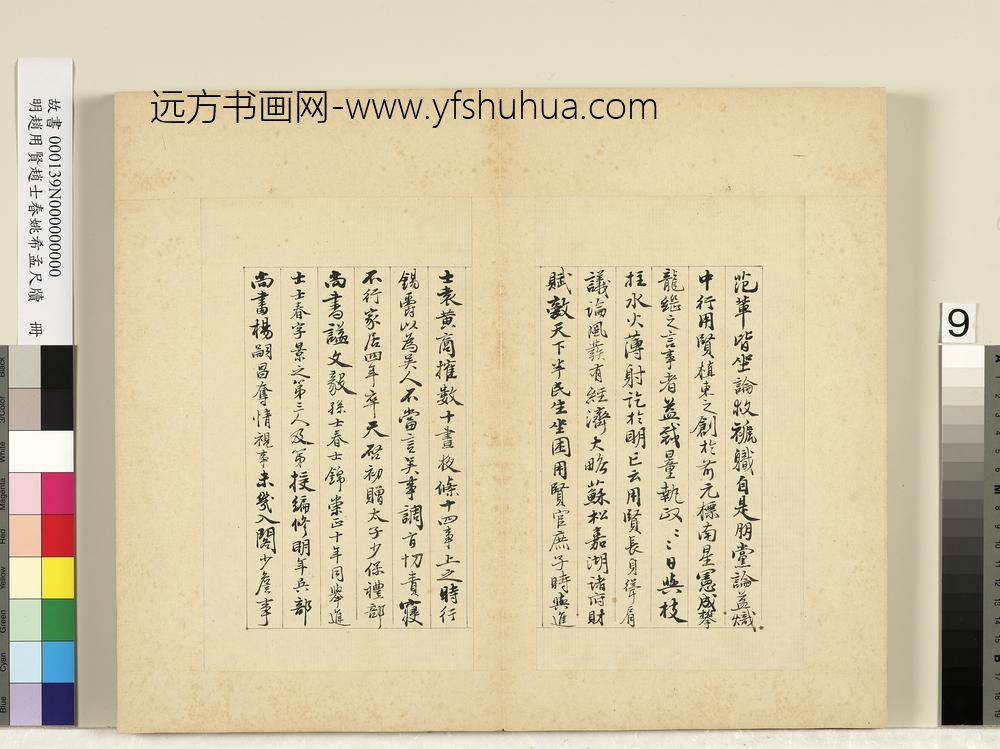 远方书画网-www.yfshuhua.com
故書 000139N000000000
明趙用賢趙士春姚希孟尺牘 冊
9
范輩皆坐論救褫職自是朋黨論益熾
中行用賢植東之創於前元標南星憲成攀
龍繼之言事者益裁量執政執政日與枝
拄水火薄射訖於明亡云用賢長身聳肩
議論風發有經濟大略蘇松嘉湖諸府財
賦敵天下半民生坐困用賢官庶子時與進
士袁黃商搉數十晝夜條十四事上之時行
錫爵以為吳人不當言吳事調旨切責寢
不行家居四年卒天啓初贈太子少保禮部
尚書謚文毅孫士春士錦崇正十年同舉進
士士春字景之第三人及第授編修明年兵部
尚書楊嗣昌奪情視事未幾入閣少詹事
Black
3/Color
White
Magenta
Red
Yellow
Green
Cyan
Blue